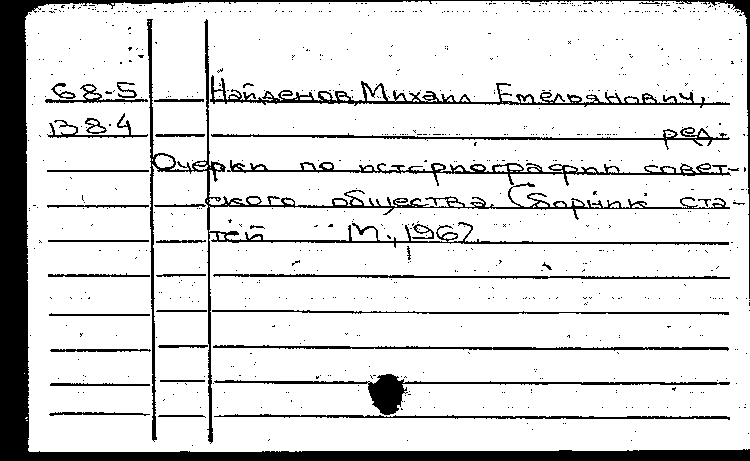 68-5 Найденов, Михаил Емельянович,
13.8.4 ред.
Очерки по историографии совет-
ского общества. Сборник ста-
тей М., 1967.